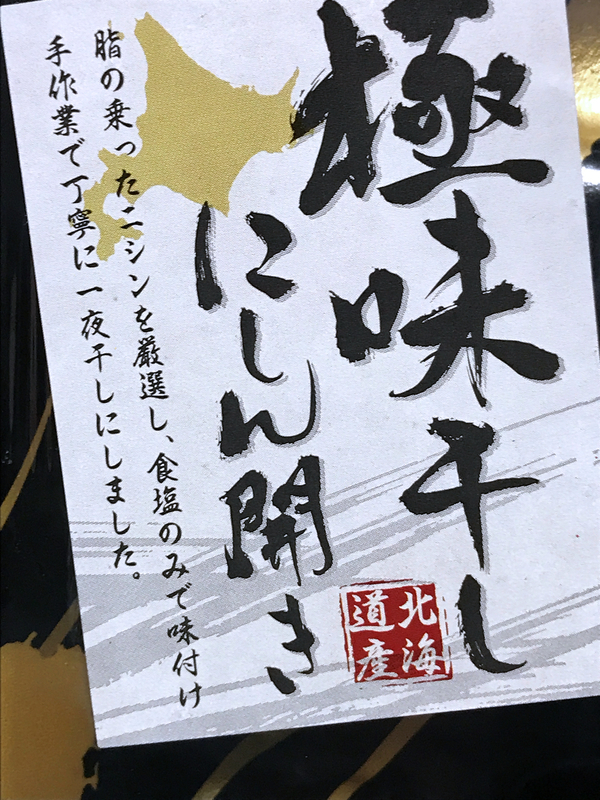 極味干し
にしん開き
北海
道産
脂の乗ったニシンを厳選し、食塩のみで味付け
手作業で丁寧に一夜干しにしました。